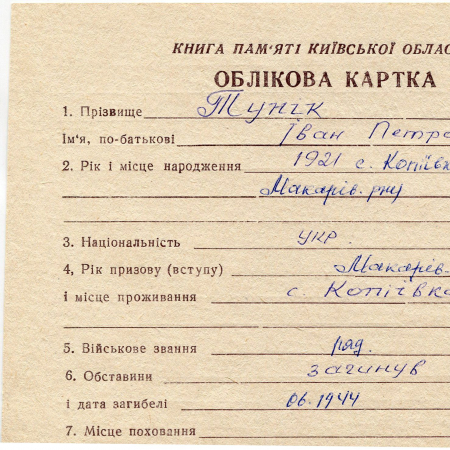 КНИГА ПАМ'ЯТІ КИЇВСЬКОЇ ОБЛАС
ОБЛІКОВА КАРТКА
1. Прізвище Тунік
Ім'я, по-батькові Іван Петро
2. Рік і місце народження 1921 с. Копіївк
Макарів. р-ну
3. Національність укр.
4, Рік призову (вступу) Макарів.
і місце проживання с. Копіївка
5. Військове звання ряд.
6. Обставини загинув
і дата загибелі 06.1944
7. Місце поховання